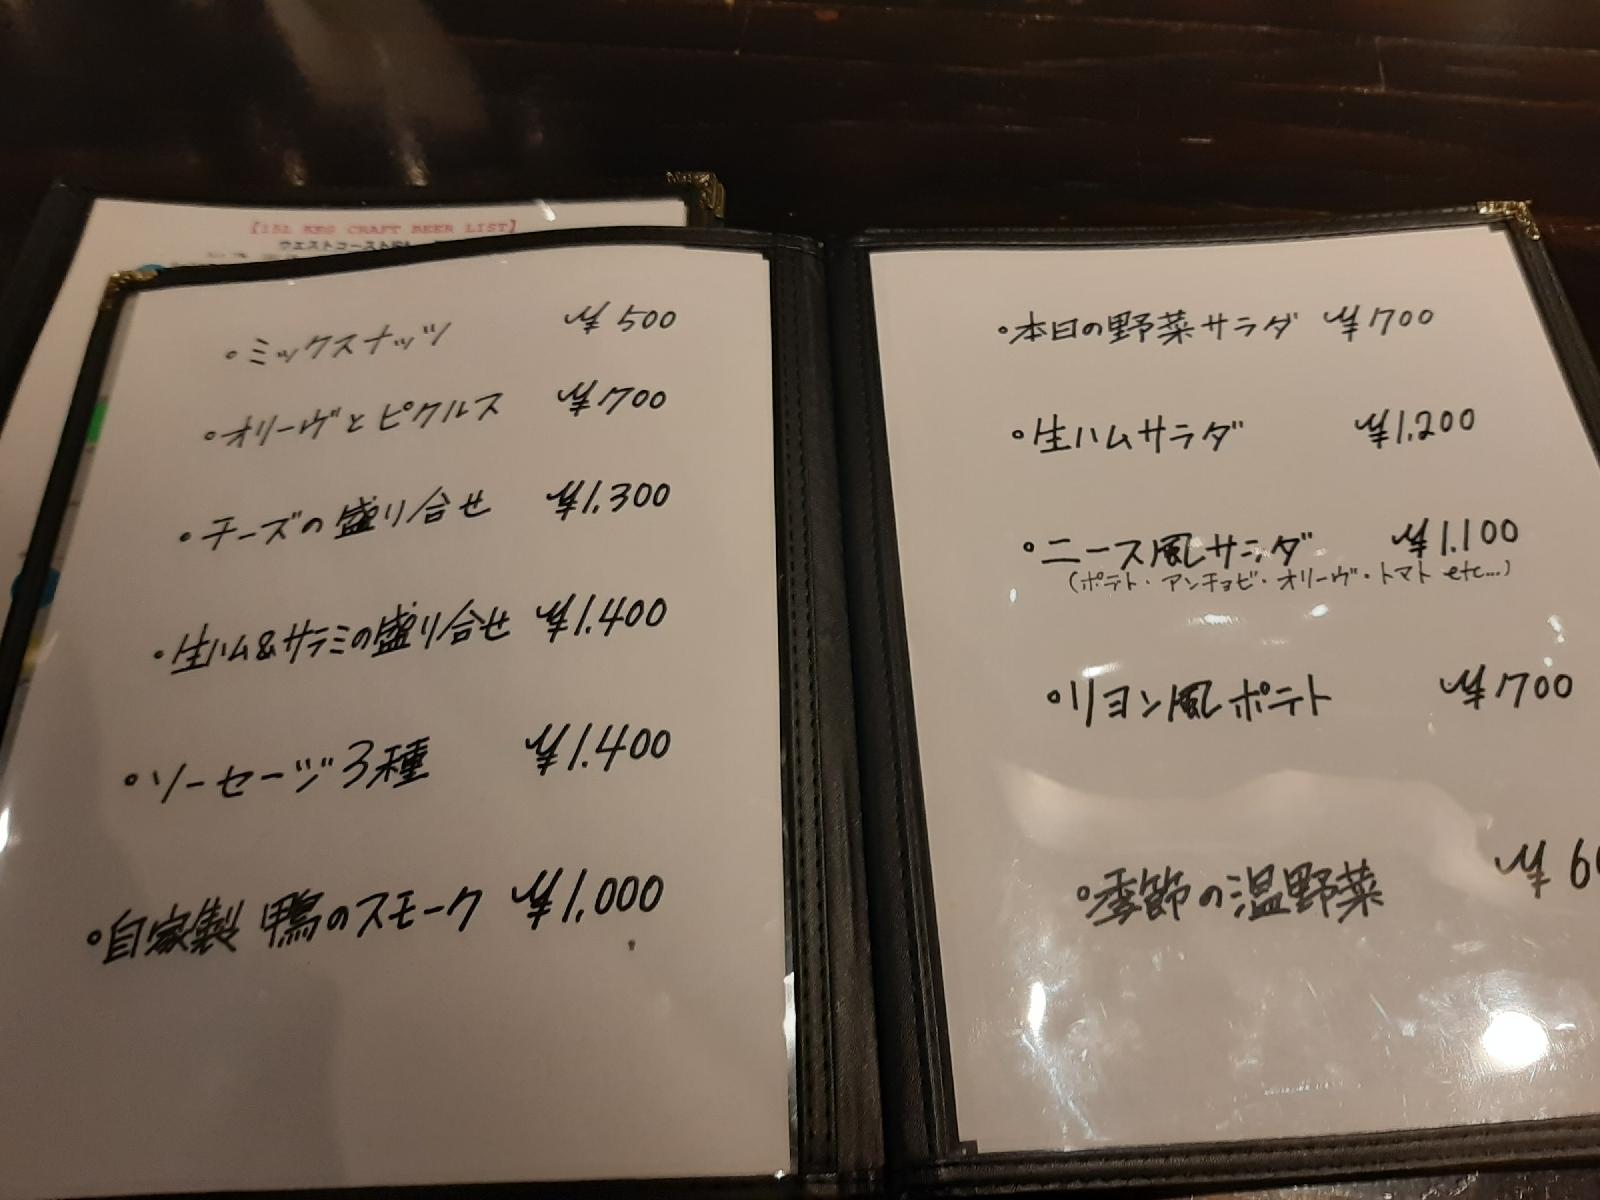 【15L KEG CRAFT BEER LIST】
ウエストコースト
・ミックスナッツ ¥500
・オリーヴとピクルス ¥700
・チーズの盛り合せ ¥1.300
・生ハム&サラミの盛り合せ ¥1.400
・ソーセージ3種 ¥1.400
・自家製 鴨のスモーク ¥1.000
・本日の野菜サラダ ¥700
・生ハムサラダ ¥1.200
・ニース風サラダ ¥1.100
(ポテト・アンチョビ・オリーヴ・トマト etc...)
・リヨン風ポテト ¥700
・季節の温野菜 ¥6